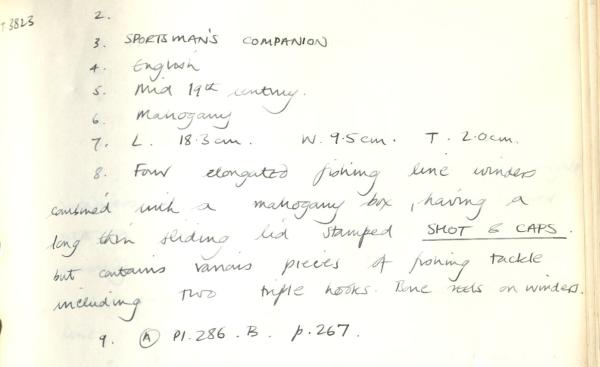 T 3823
2.
3. SPORTSMAN'S COMPANION
4. English
5. Mid 19th century.
6. Mahogany
7. L. 18.3cm. W. 9.5cm. T. 2.0cm.
8. Four elongated fishing line winders
combined with a mahogany box, having a
long thin sliding lid stamped SHOT & CAPS.
but contains various pieces of fishing tackle
including two triple hooks. Bone reels on winders.
9. (A) Pl. 286. B. p. 267.